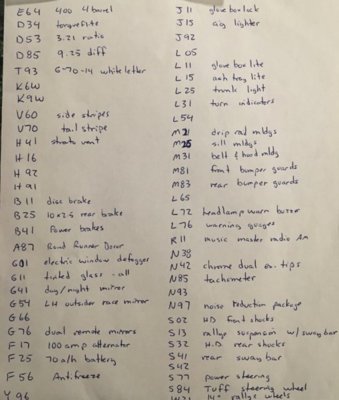 E64 400 4 barrel
D34 torqueflite
D53 3.21 ratio
D85 9.25 diff
T93 G-70-14 white letter
K6W
K9W
V60 side stripes
V70 tail stripe
H41 strato vent
H16
H92
H91
B11 disc brake
B25 10x2.5 rear brake
B41 Power brakes
A87 Road Runner Decor
G01 electric window defogger
G11 tinted glass - all
G41 day/night mirror
G54 LH outside race mirror
G66
G76 dual remote mirrors
F17 100 amp alternator
F25 70 a/h battery
F56 Antifreeze
Y96
J11 glove box lock
J15 cig lighter
J92
L05
L11 glove box lite
L15 ash tray lite
L25 trunk light
L31 turn indicators
L54
M21 drip rail mldgs
M25 sill mldgs
M31 belt & hood mldg
M81 front bumper guards
M83 rear bumper guards
L65
L72 headlamp warn buzzer
L76 warning guages
R11 music master radio Am
N38
N42 chrome dual ex. tips
N85 tachometer
N93
N97 noise reduction package
S02 HD front shocks
S13 rallye suspension w/ sway bar
S32 H.D. rear shocks
S41 rear sway bar
S42
S77 power steering
S84 Tuff steering wheel
W21 14" rallye wheels